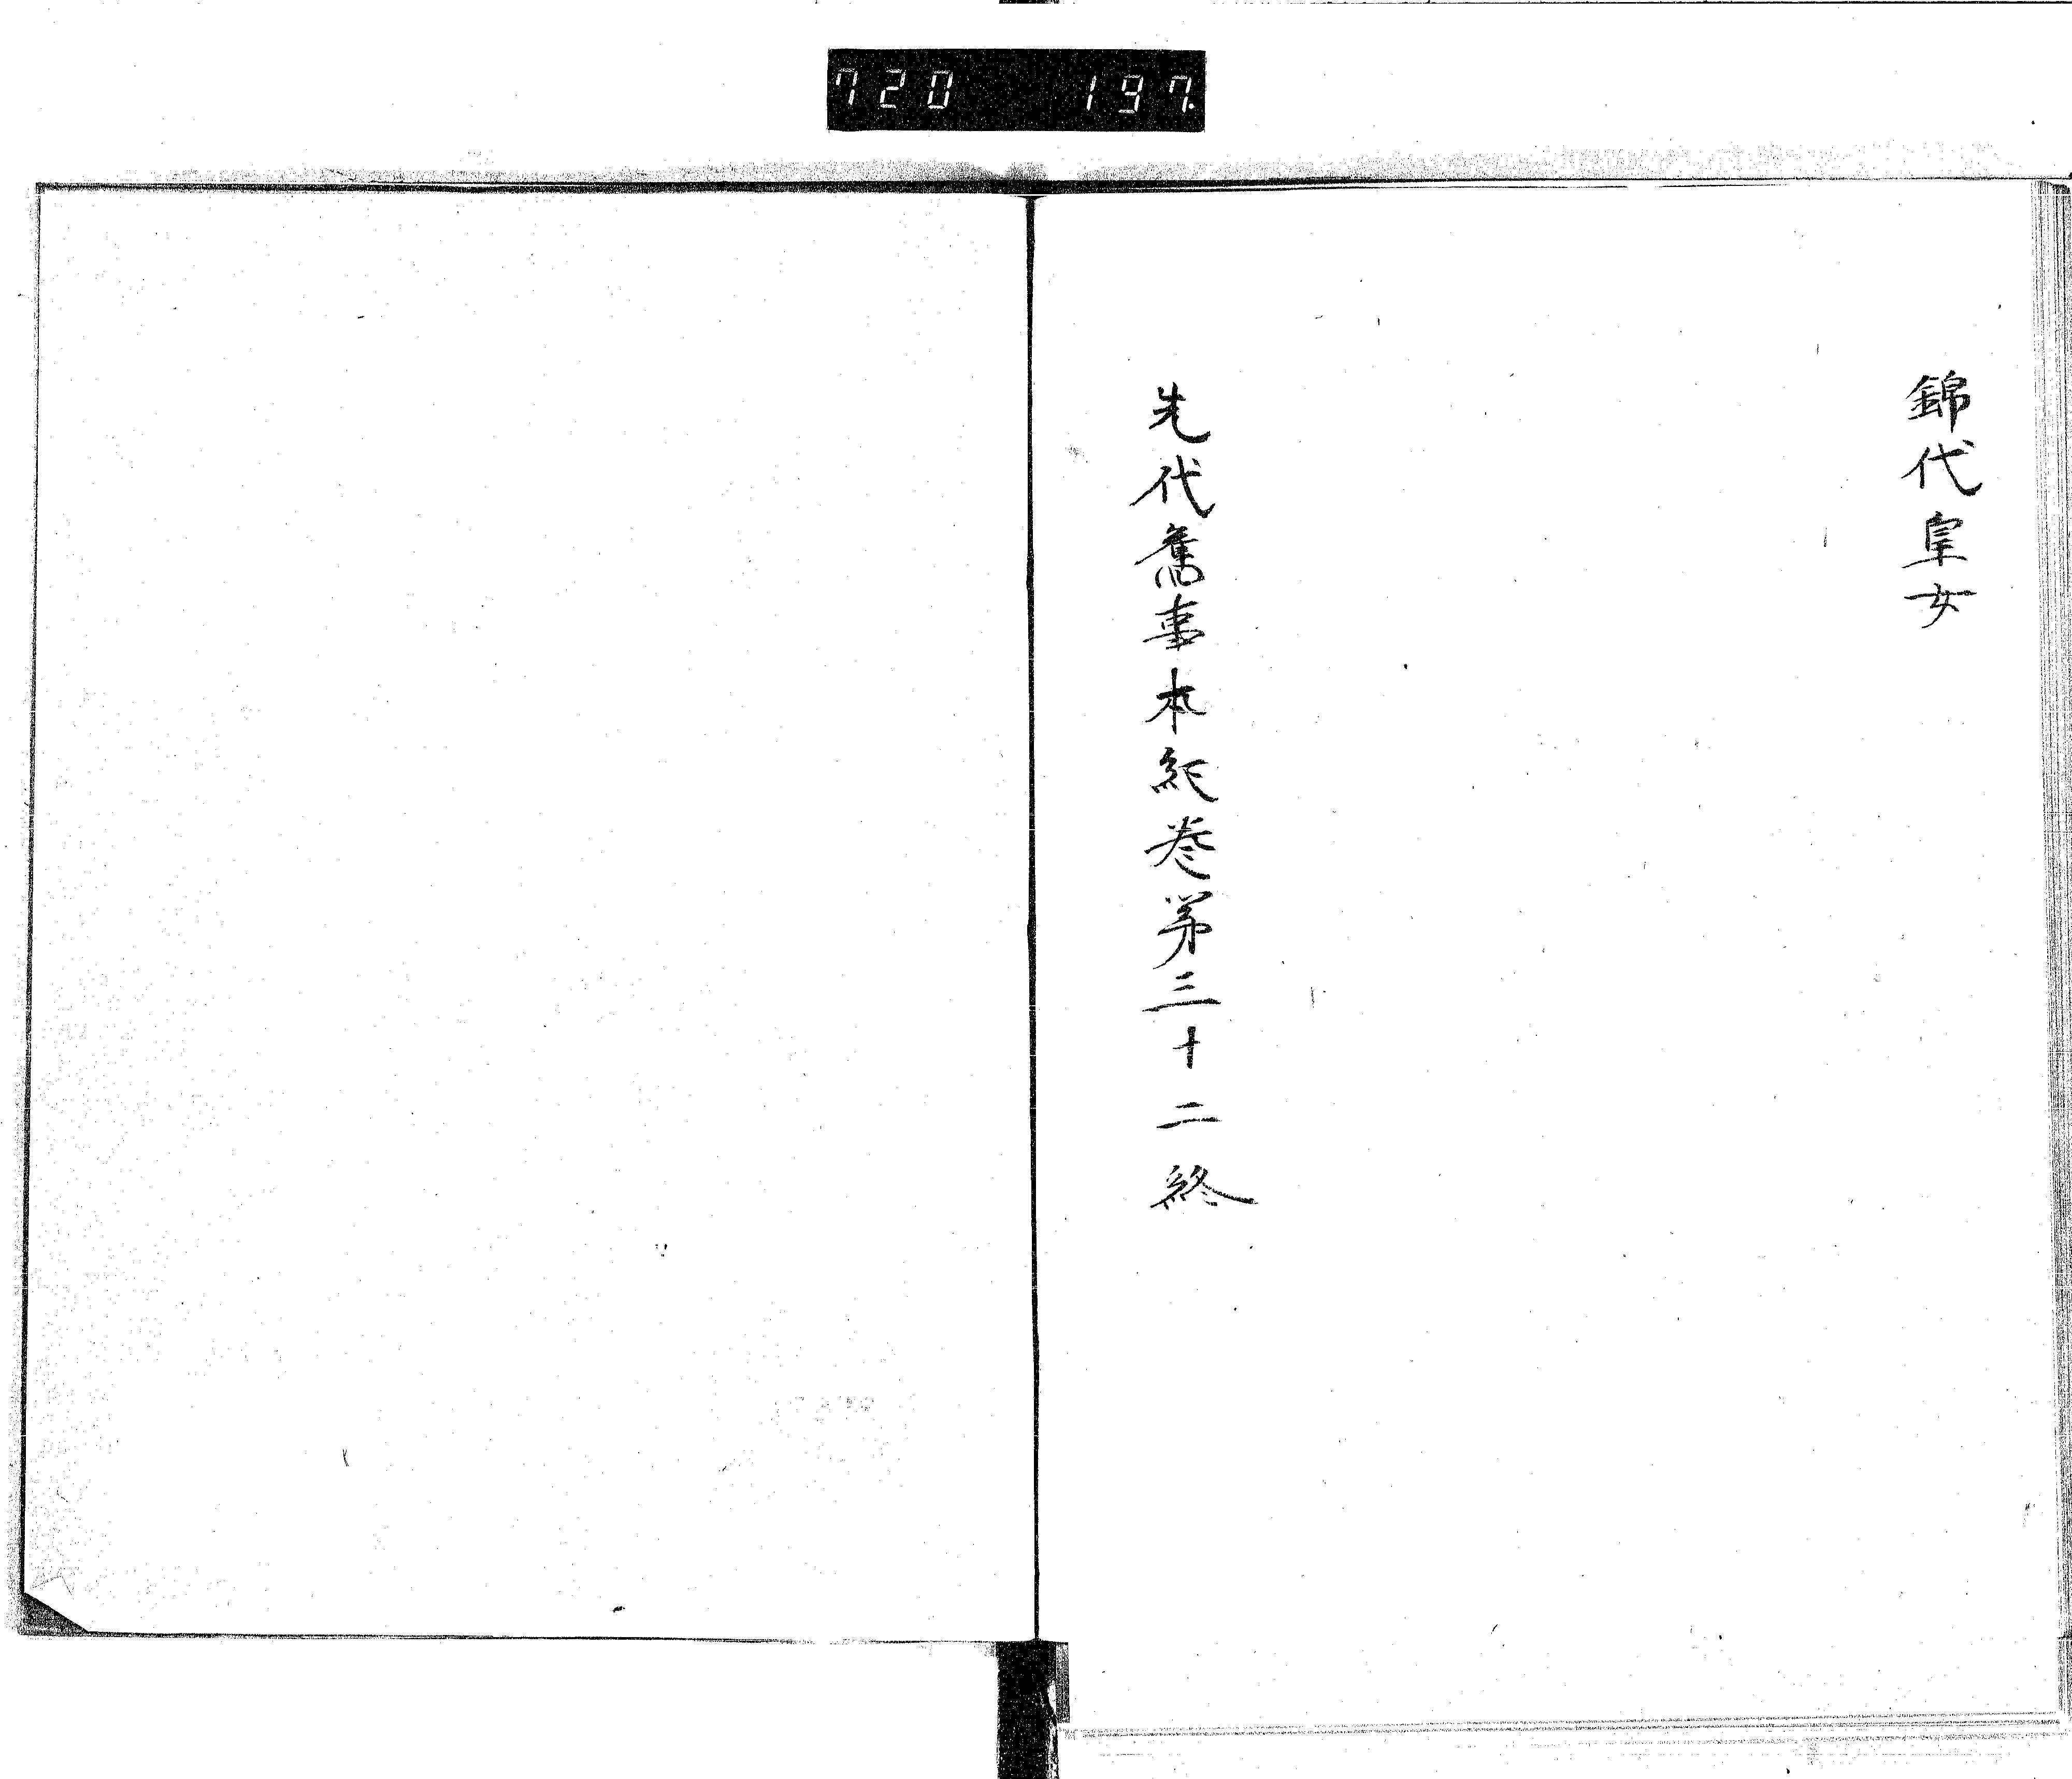 720 197.
錦代皇女
先代舊事本紀巻第三十二終